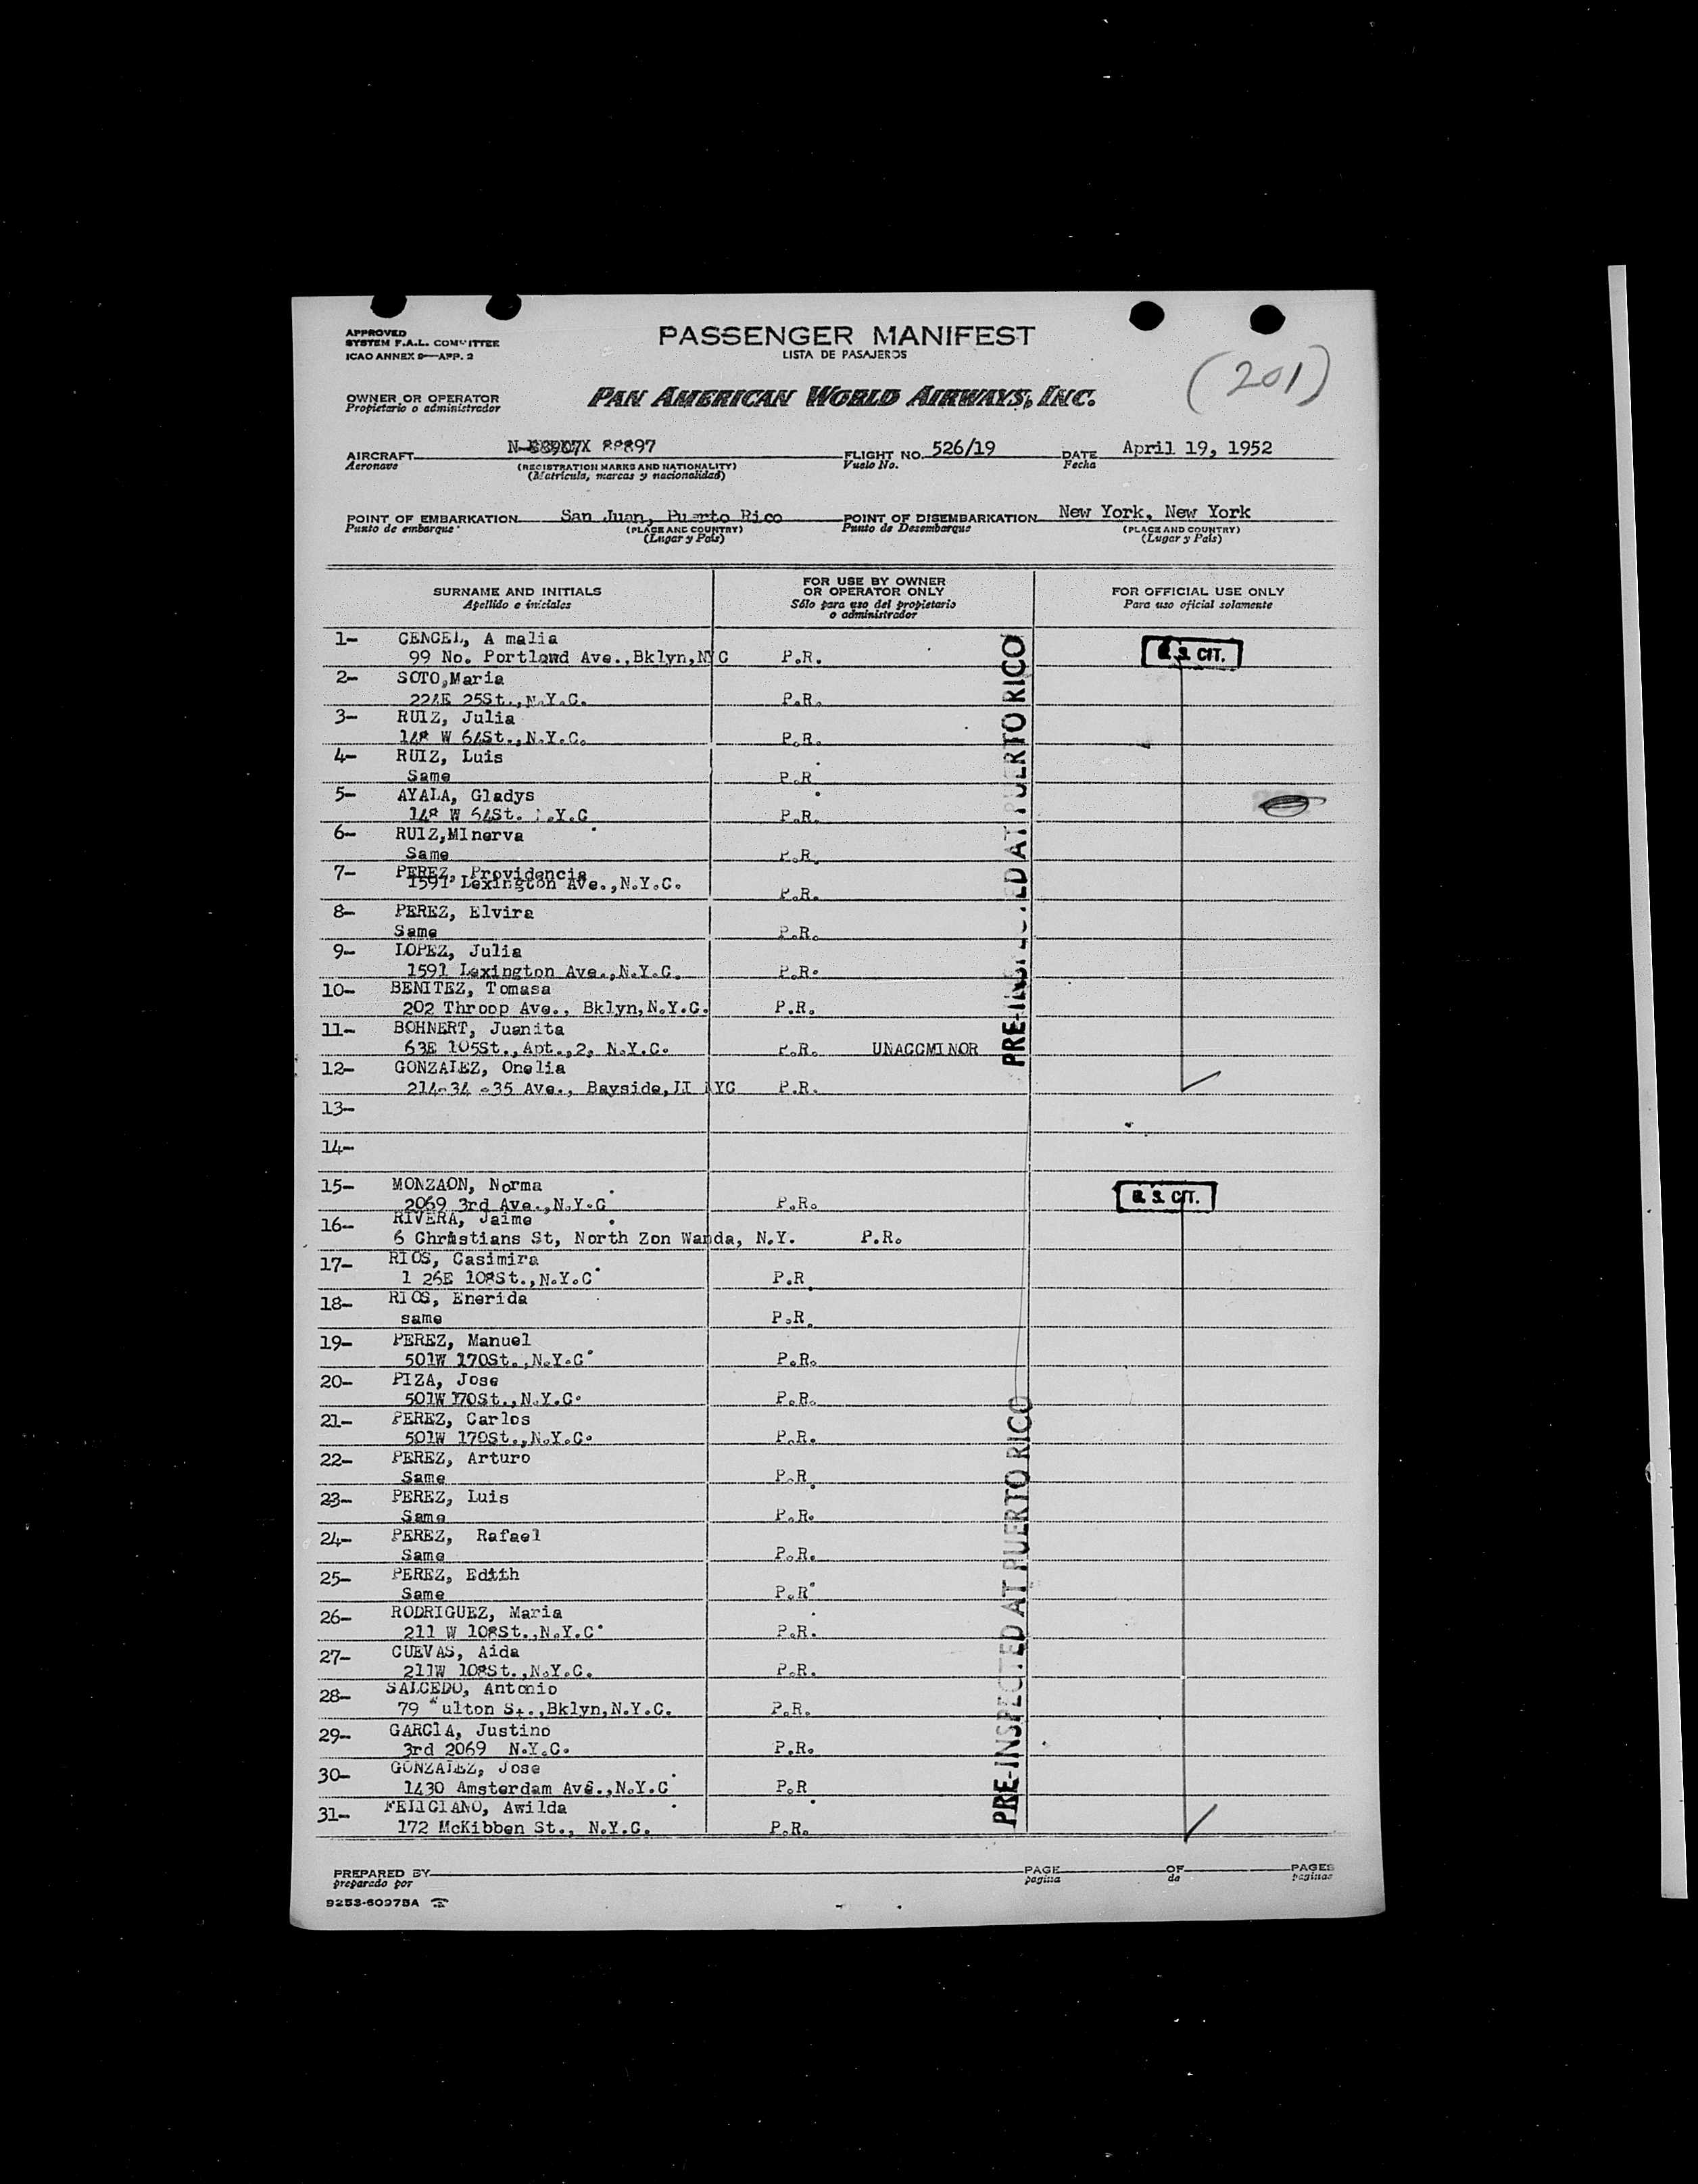 APPROVED
SYSTEM F.A.L. COMMITTEE
ICAO ANNEX 9—APP. 2
PASSENGER MANIFEST
LISTA DE PASAJEROS
(201)
OWNER OR OPERATOR
Propietario o administrador
PAN AMERICAN WORLD AIRWAYS, INC.
AIRCRAFT 88897
Aeronave
(REGISTRATION MARKS AND NATIONALITY)
(Matricula, marcas y nacionalidad)
FLIGHT NO. 526/19
Vuelo No.
DATE April 19, 1952
Fecha
POINT OF EMBARKATION San Juan, Puerto Rico
Punto de embarque
(PLACE AND COUNTRY)
(Lugar y País)
POINT OF DISEMBARKATION New York, New York
Punto de Desembarque
(PLACE AND COUNTRY)
(Lugar y País)
SURNAME AND INITIALS
Apellido e iniciales
FOR USE BY OWNER
OR OPERATOR ONLY
Sólo para uso del propietario
o administrador
FOR OFFICIAL USE ONLY
Para uso oficial solamente
1- CENCEL, A malia
99 No. Portlawd Ave.,Bklyn,NYC P.R.
U. S. CIT.
2- SOTO,Maria
224E 25St.,N.Y.C. P.R.
3- RUIZ, Julia
148 W 64St.,N.Y.C. P.R.
4- RUIZ, Luis
Same P.R.
5- AYALA, Gladys
148 W 64St. N.Y.C. P.R.
6- RUIZ,MInerva
Same P.R.
7- PEREZ, Providencia
1591 Lexington Ave.,N.Y.C. P.R.
8- PEREZ, Elvira
Same P.R.
9- LOPEZ, Julia
1591 Lexington Ave.,N.Y.C. P.R.
10- BENITEZ, Tomasa
202 Throop Ave., Bklyn,N.Y.C. P.R.
11- BOHNERT, Juanita
63E 105St.,Apt.,2, N.Y.C. P.R. UNACCMINOR
12- GONZALEZ, Onelia
214-34 -35 Ave., Bayside,LI NYC P.R.
PRE-INSPECTED AT PUERTO RICO
13-
14-
15- MONZAON, Norma
2069 3rd Ave.,N.Y.C. P.R.
U. S. CIT.
16- RIVERA, Jaime
6 Christians St, North Zon Wanda, N.Y. P.R.
17- RIOS, Casimira
1 26E 108St.,N.Y.C. P.R.
18- RIOS, Enerida
same P.R.
19- PEREZ, Manuel
501W 170St.,N.Y.C. P.R.
20- PIZA, Jose
501W 170St.,N.Y.C. P.R.
21- PEREZ, Carlos
501W 170St.,N.Y.C. P.R.
22- PEREZ, Arturo
Same P.R.
23- PEREZ, Luis
Same P.R.
24- PEREZ, Rafael
Same P.R.
25- PEREZ, Edith
Same P.R.
26- RODRIGUEZ, Maria
211 W 108St.,N.Y.C. P.R.
27- CUEVAS, Aida
211W 108St.,N.Y.C. P.R.
28- SALCEDO, Antonio
79 ulton St.,Bklyn,N.Y.C. P.R.
29- GARCIA, Justino
3rd 2069 N.Y.C. P.R.
30- GONZALEZ, Jose
1430 Amsterdam Ave.,N.Y.C. P.R.
31- FELICIANO, Awilda
172 McKibben St., N.Y.C. P.R.
PRE-INSPECTED AT PUERTO RICO
PREPARED BY PAGE OF PAGES
preparado por pagina de paginas
9253-60975A